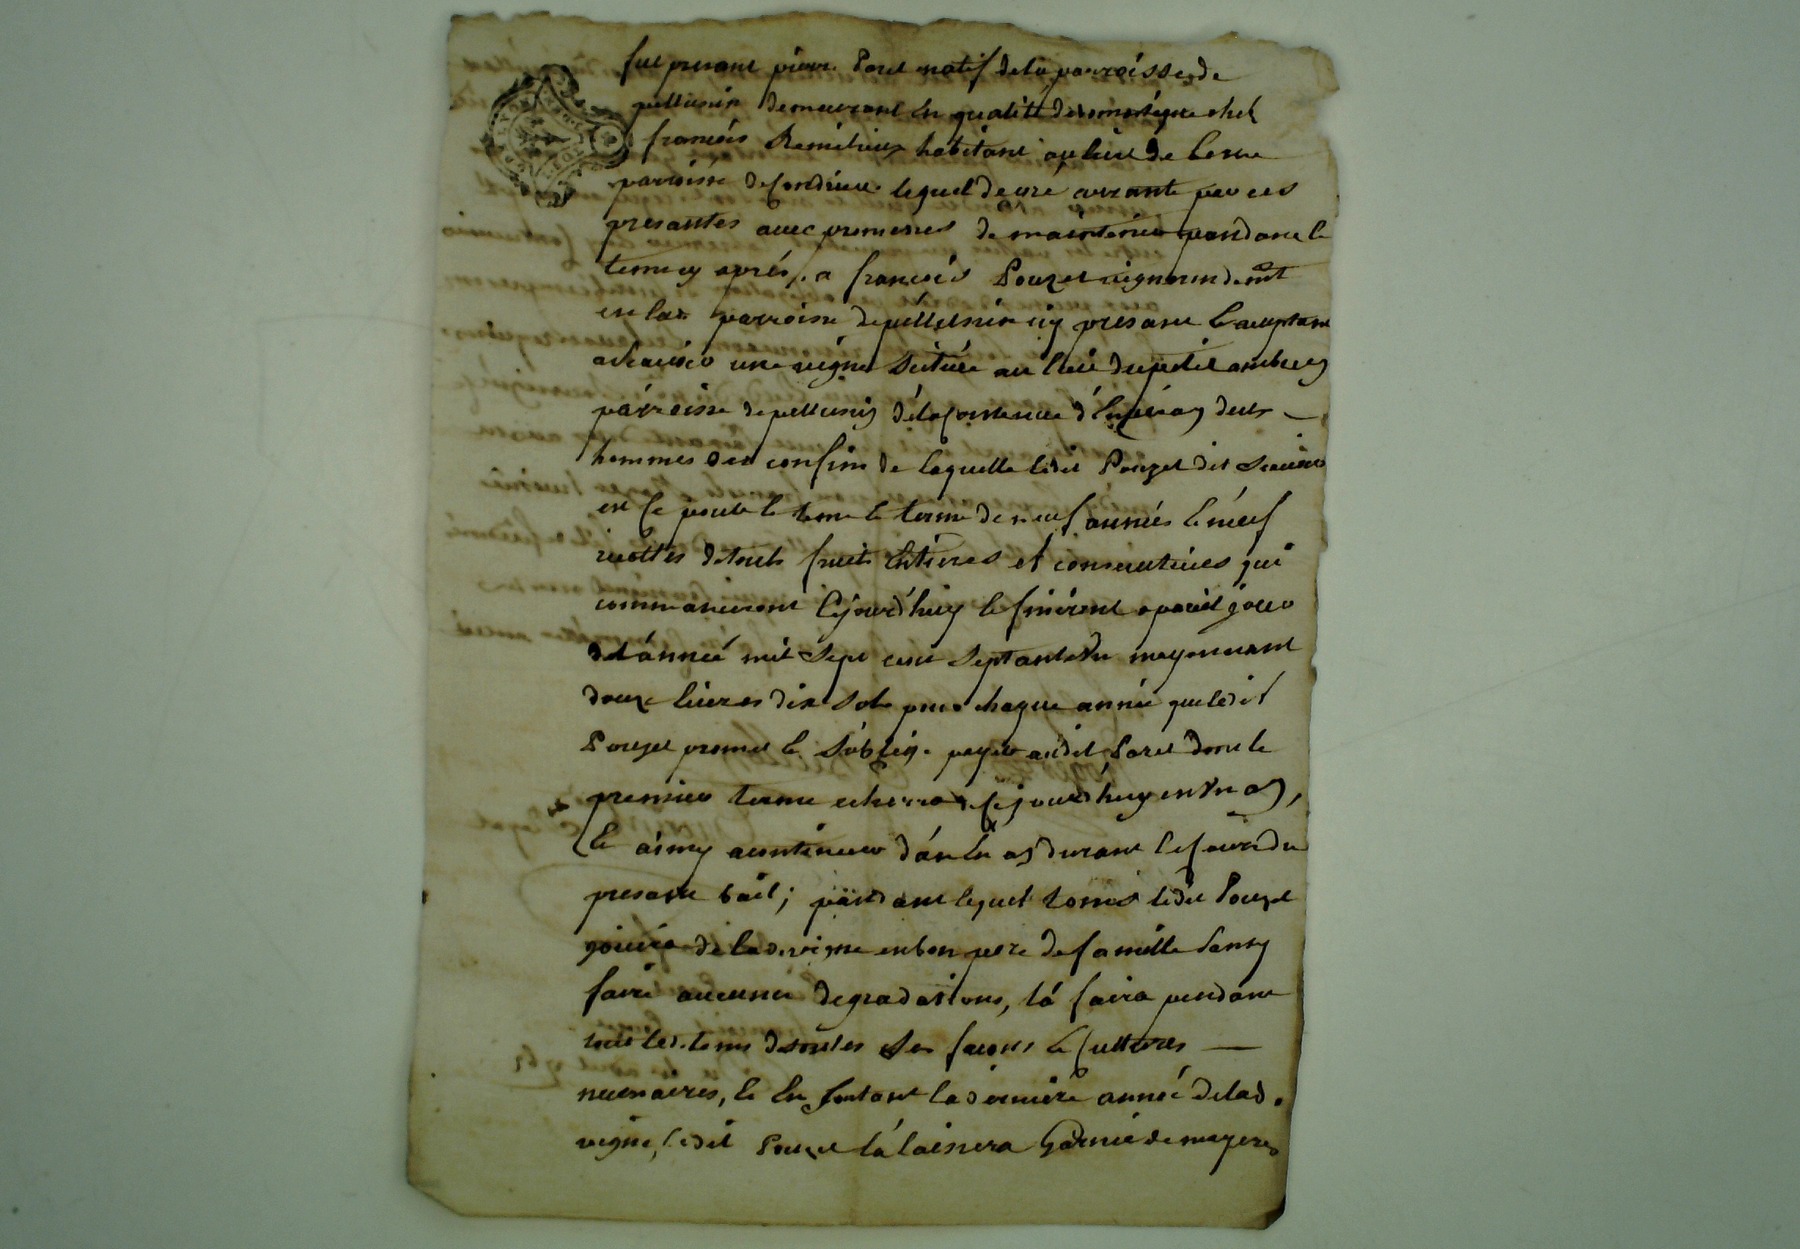 fut presant pierre Poret natif de la parroisse de
pellusin demeurant en qualitté de domestique chez
francois habitant au lieu de
parroisse de Condrieu lequel de gré arrante par ces
presantes avec promesses de maintenir pandant le
terme cy aprés, a francois Pouzet vigneron demt
en la parroisse de pellusin icy presant & acceptant
a scavoir une vigne scituée au lieu du petit
parroisse de pellusin de la contenue d'environ deux
hommes des confins de laquelle ledit Pouzet dit scavoir
et ce pour le terme le terme de neuf années & neuf
recoltes de touts fruits entieres et consecutives qui
commanceront cejourd'huy & finiront a pareil jour
de l'année mil sept cent septante un moyennant
douze livres dix sols pour chaque année que ledit
Pouzet promet & s'oblige payer audit Poret dont le
premier terme echerra cejourd'huy en un an,
& ainsy acontinuer d'an en an durant le cours du
presant bail; pandant lequel tems ledit Pouzet
jouira de la d. vigne en bon pere de famille sans y
faire aucunes degradations, la faira pendant
tout led. tems de toutes ses facons & cultures
necessaires, & en sortant la derniere année de lad.
vigne, ledit Pouzet la laissera garnie de